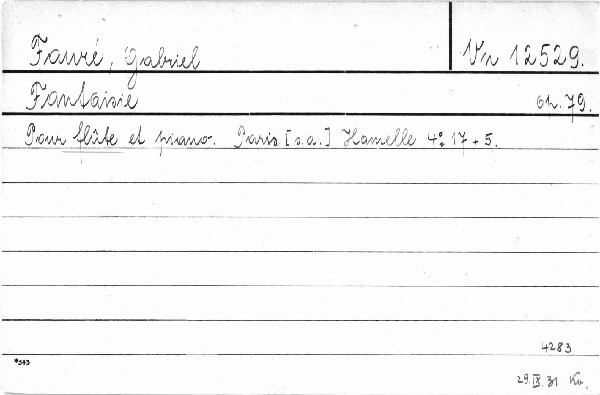 Fauré, Gabriel Vn 12529.
Fantaisie op. 79.
Pour flûte et piano. Paris [s.a.] Hamelle 4° 17+5.
4283
*543
29.IX.31 Kv.